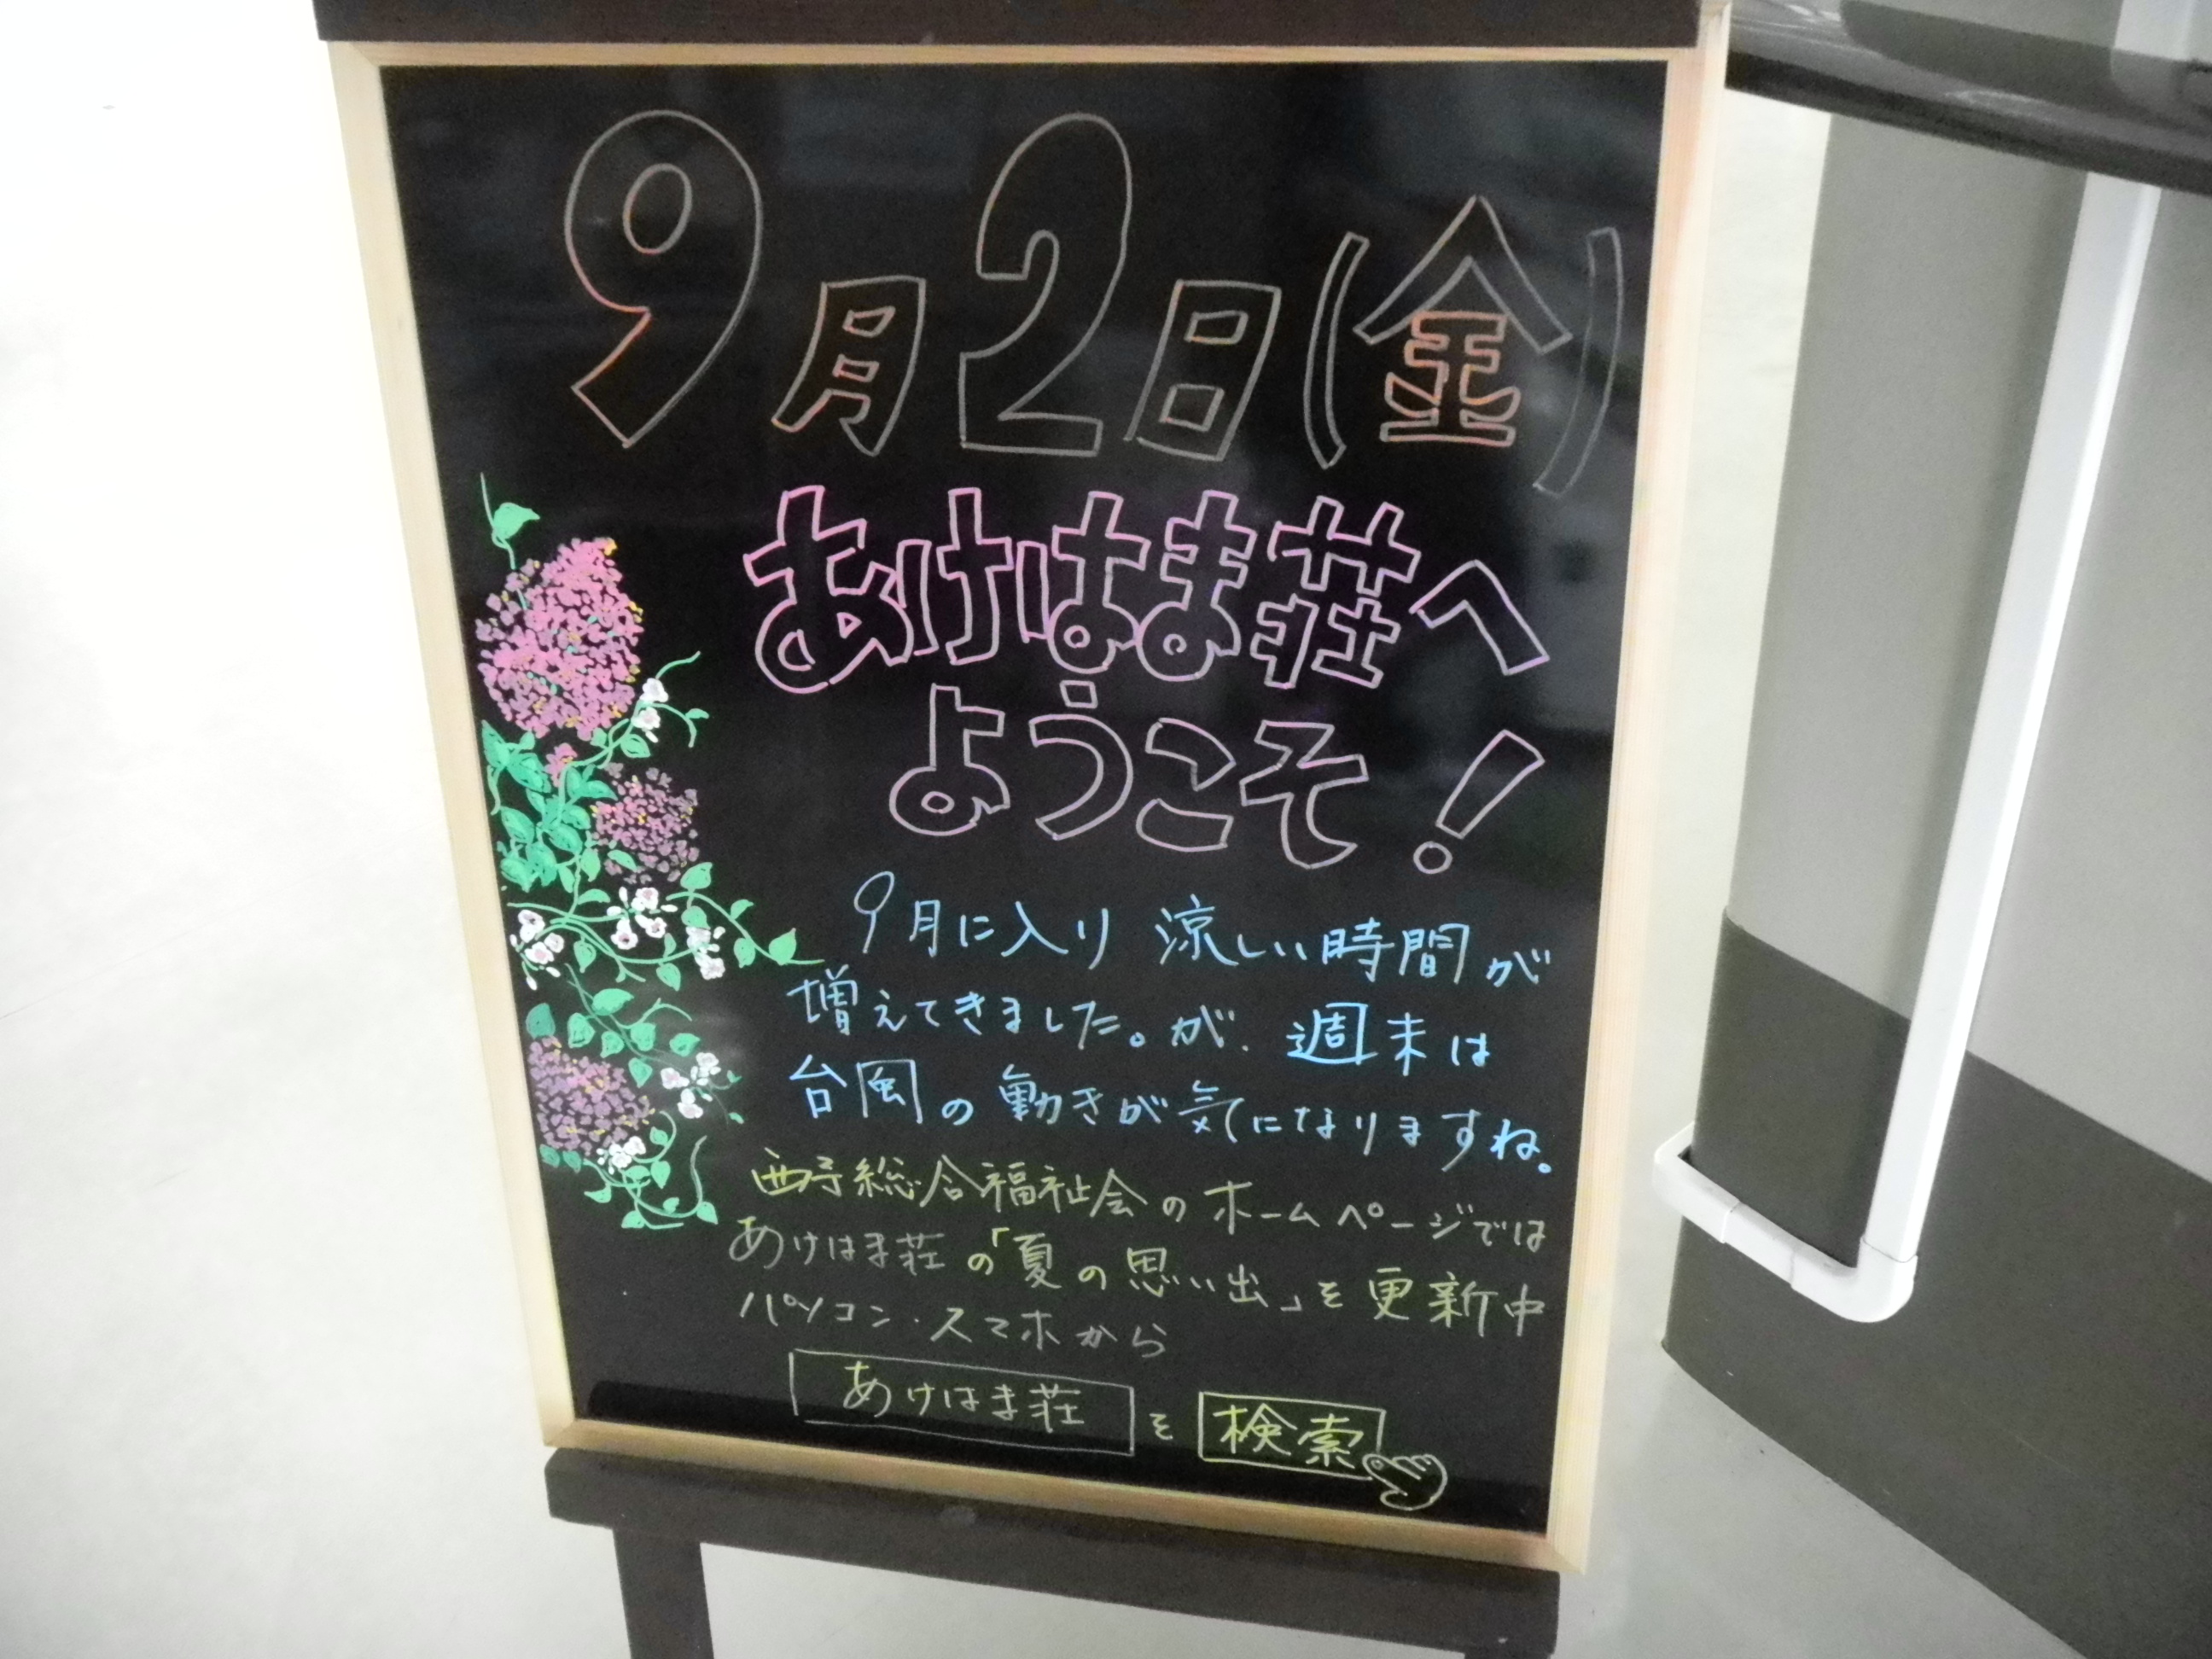 9月2日(金)
あけはま荘へ
ようこそ!
9月に入り 涼しい時間が
増えてきました。が、週末は
台風の動きが気になりますね。
西予総合福祉会のホームページでは
あけはま荘の「夏の思い出」を更新中
パソコン・スマホから
あけはま荘 を 検索